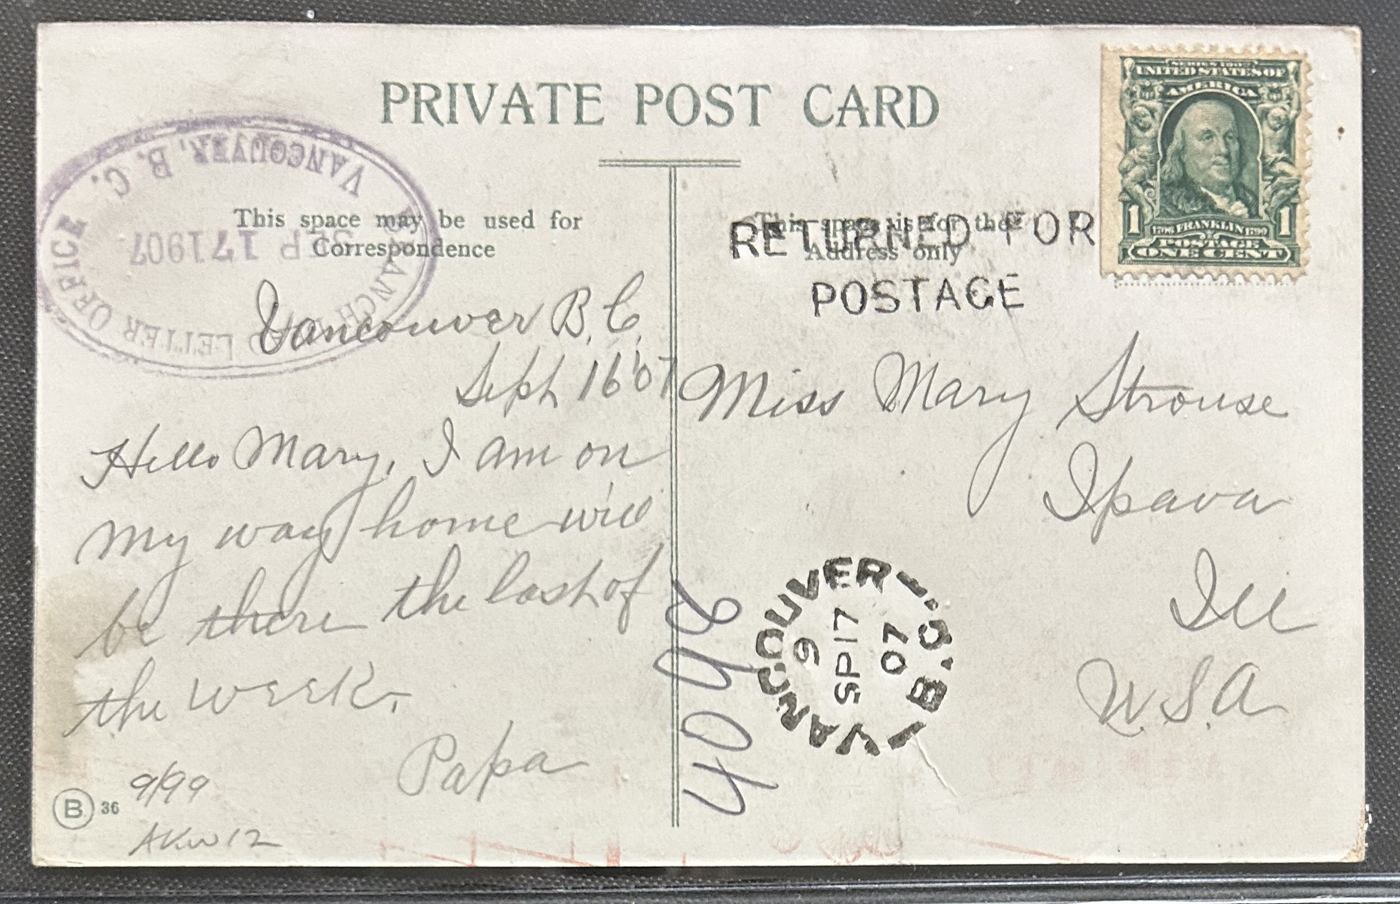 PRIVATE POST CARD
This space may be used for
Correspondence
This space is for the
Address only
RETURNED FOR
POSTAGE
SERIES 1902
UNITED STATES OF
AMERICA
1 1706 FRANKLIN 1790 1
POSTAGE
ONE CENT
BRANCH DEAD LETTER OFFICE
SEP 17 1907
VANCOUVER, B. C.
Vancouver B.C.
Sept 16 '07
Hello Mary, I am on
my way home will
be there the last of
the week.
Papa
Miss Mary Strouse
Ipava
Ill
U.S.A
VANCOUVER B.C.
9
SP 17
07
B. 36
9/99
AKW12